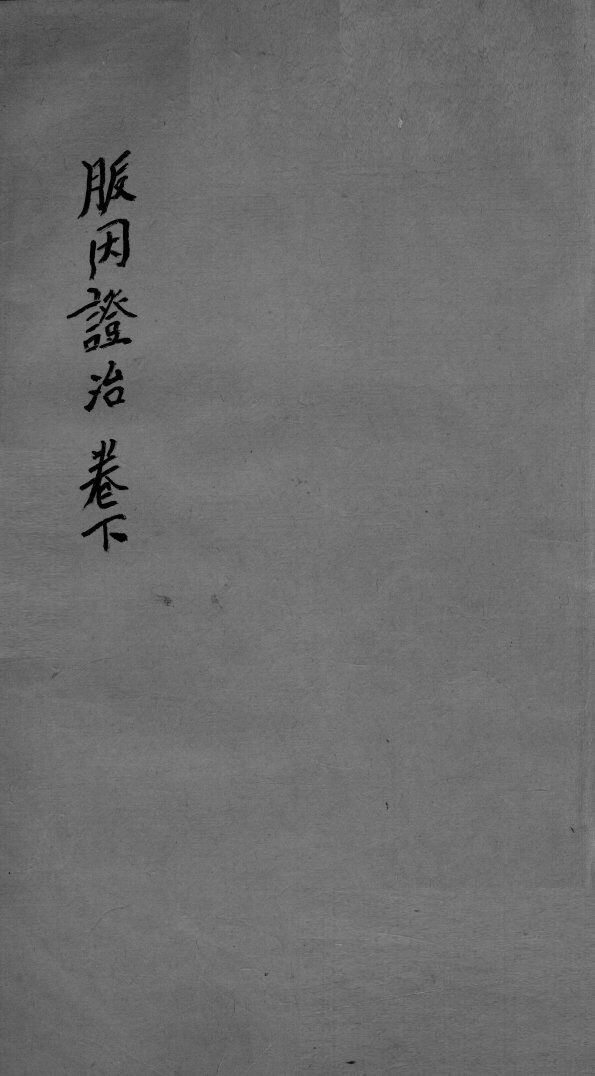 脈因證治 卷下